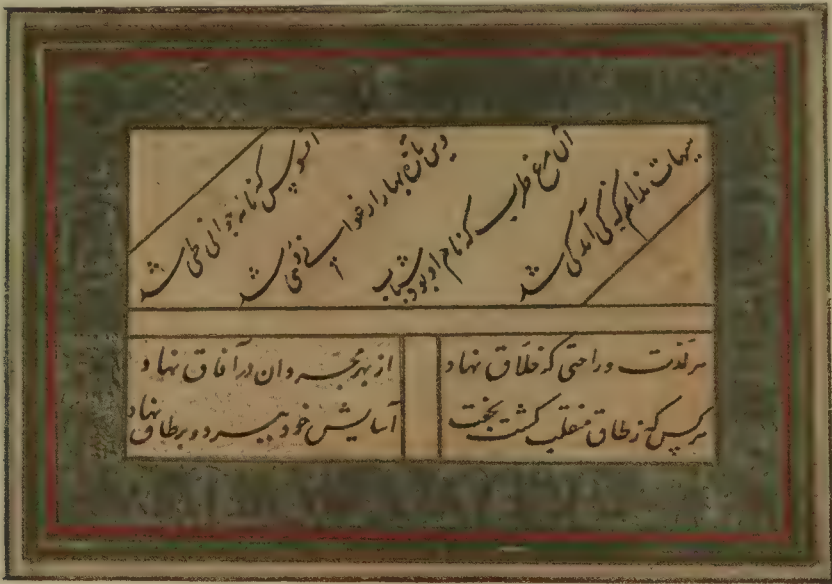 افسوس که نامه جوانی طی شد
وین تازه بهار ارغوانی دی شد
آن مرغ طرب که نام او بود شباب
هیهات ندانم که کی آمد کی شد
هر لذت و راحتی که خلاق نهاد
از بهر مجردان در آفاق نهاد
هر کس که ز طاق منقلب گشت بجفت
آسایش خود ببرد و بر طاق نهاد